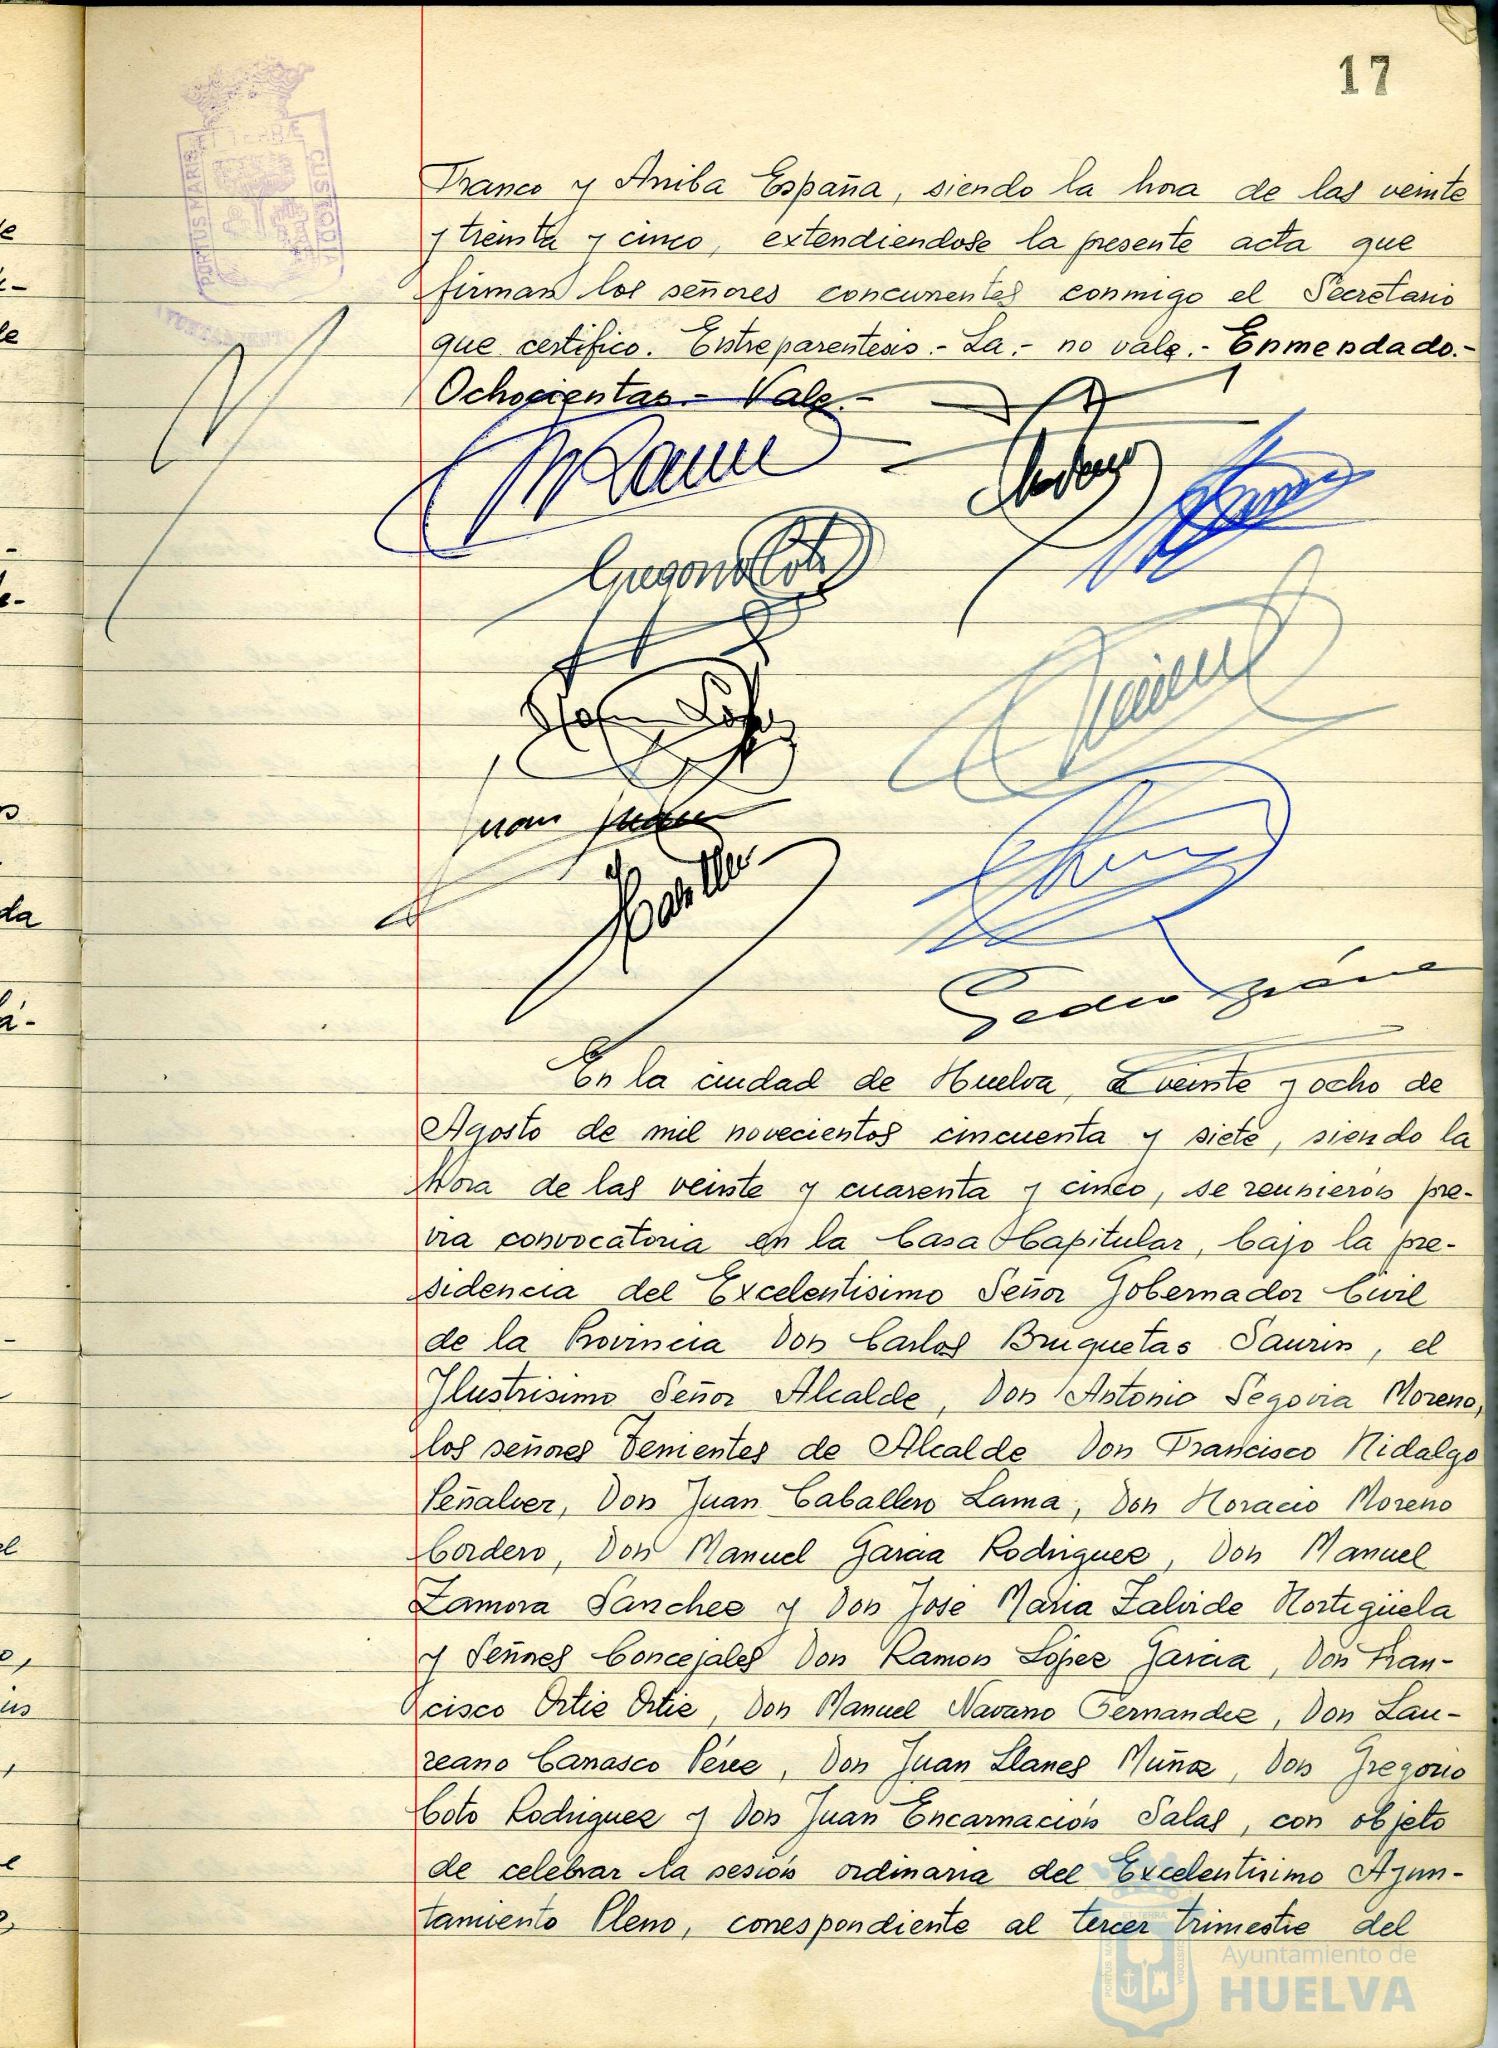 17
PORTUS MARIS ET TERRÆ CUSTODIA
AYUNTAMIENTO
Franco y Arriba España, siendo la hora de las veinte
y treinta y cinco, extendiendose la presente acta que
firman los señores concurrentes conmigo el Secretario
que certifico. Entreparentesis.- La.- no vale.- Enmendado.-
Ochocientas.- Vale.-
Gregorio Coto
Ramon López
Juan
Pedro
En la ciudad de Huelva, a veinte y ocho de
Agosto de mil novecientos cincuenta y siete, siendo la
hora de las veinte y cuarenta y cinco, se reunieron pre-
via convocatoria en la Casa Capitular, bajo la pre-
sidencia del Excelentisimo Señor Gobernador Civil
de la Provincia Don Carlos Bruquetas Saurin, el
Ilustrisimo Señor Alcalde, Don Antonio Segovia Moreno,
los señores Tenientes de Alcalde Don Francisco Hidalgo
Peñalver, Don Juan Caballero Lama, Don Horacio Moreno
Cordero, Don Manuel Garcia Rodriguez, Don Manuel
Zamora Sanchez y Don Jose Maria Zalvide Hortigüela
y Señores Concejales Don Ramon López Garcia, Don Fran-
cisco Ortiz Ortiz, Don Manuel Navarro Fernandez, Don Lau-
reano Carrasco Pérez, Don Juan Llanes Muñoz, Don Gregorio
Coto Rodriguez y Don Juan Encarnación Salas, con objeto
de celebrar la sesión ordinaria del Excelentisimo Ayun-
tamiento Pleno, correspondiente al tercer trimestre del
Ayuntamiento de
HUELVA